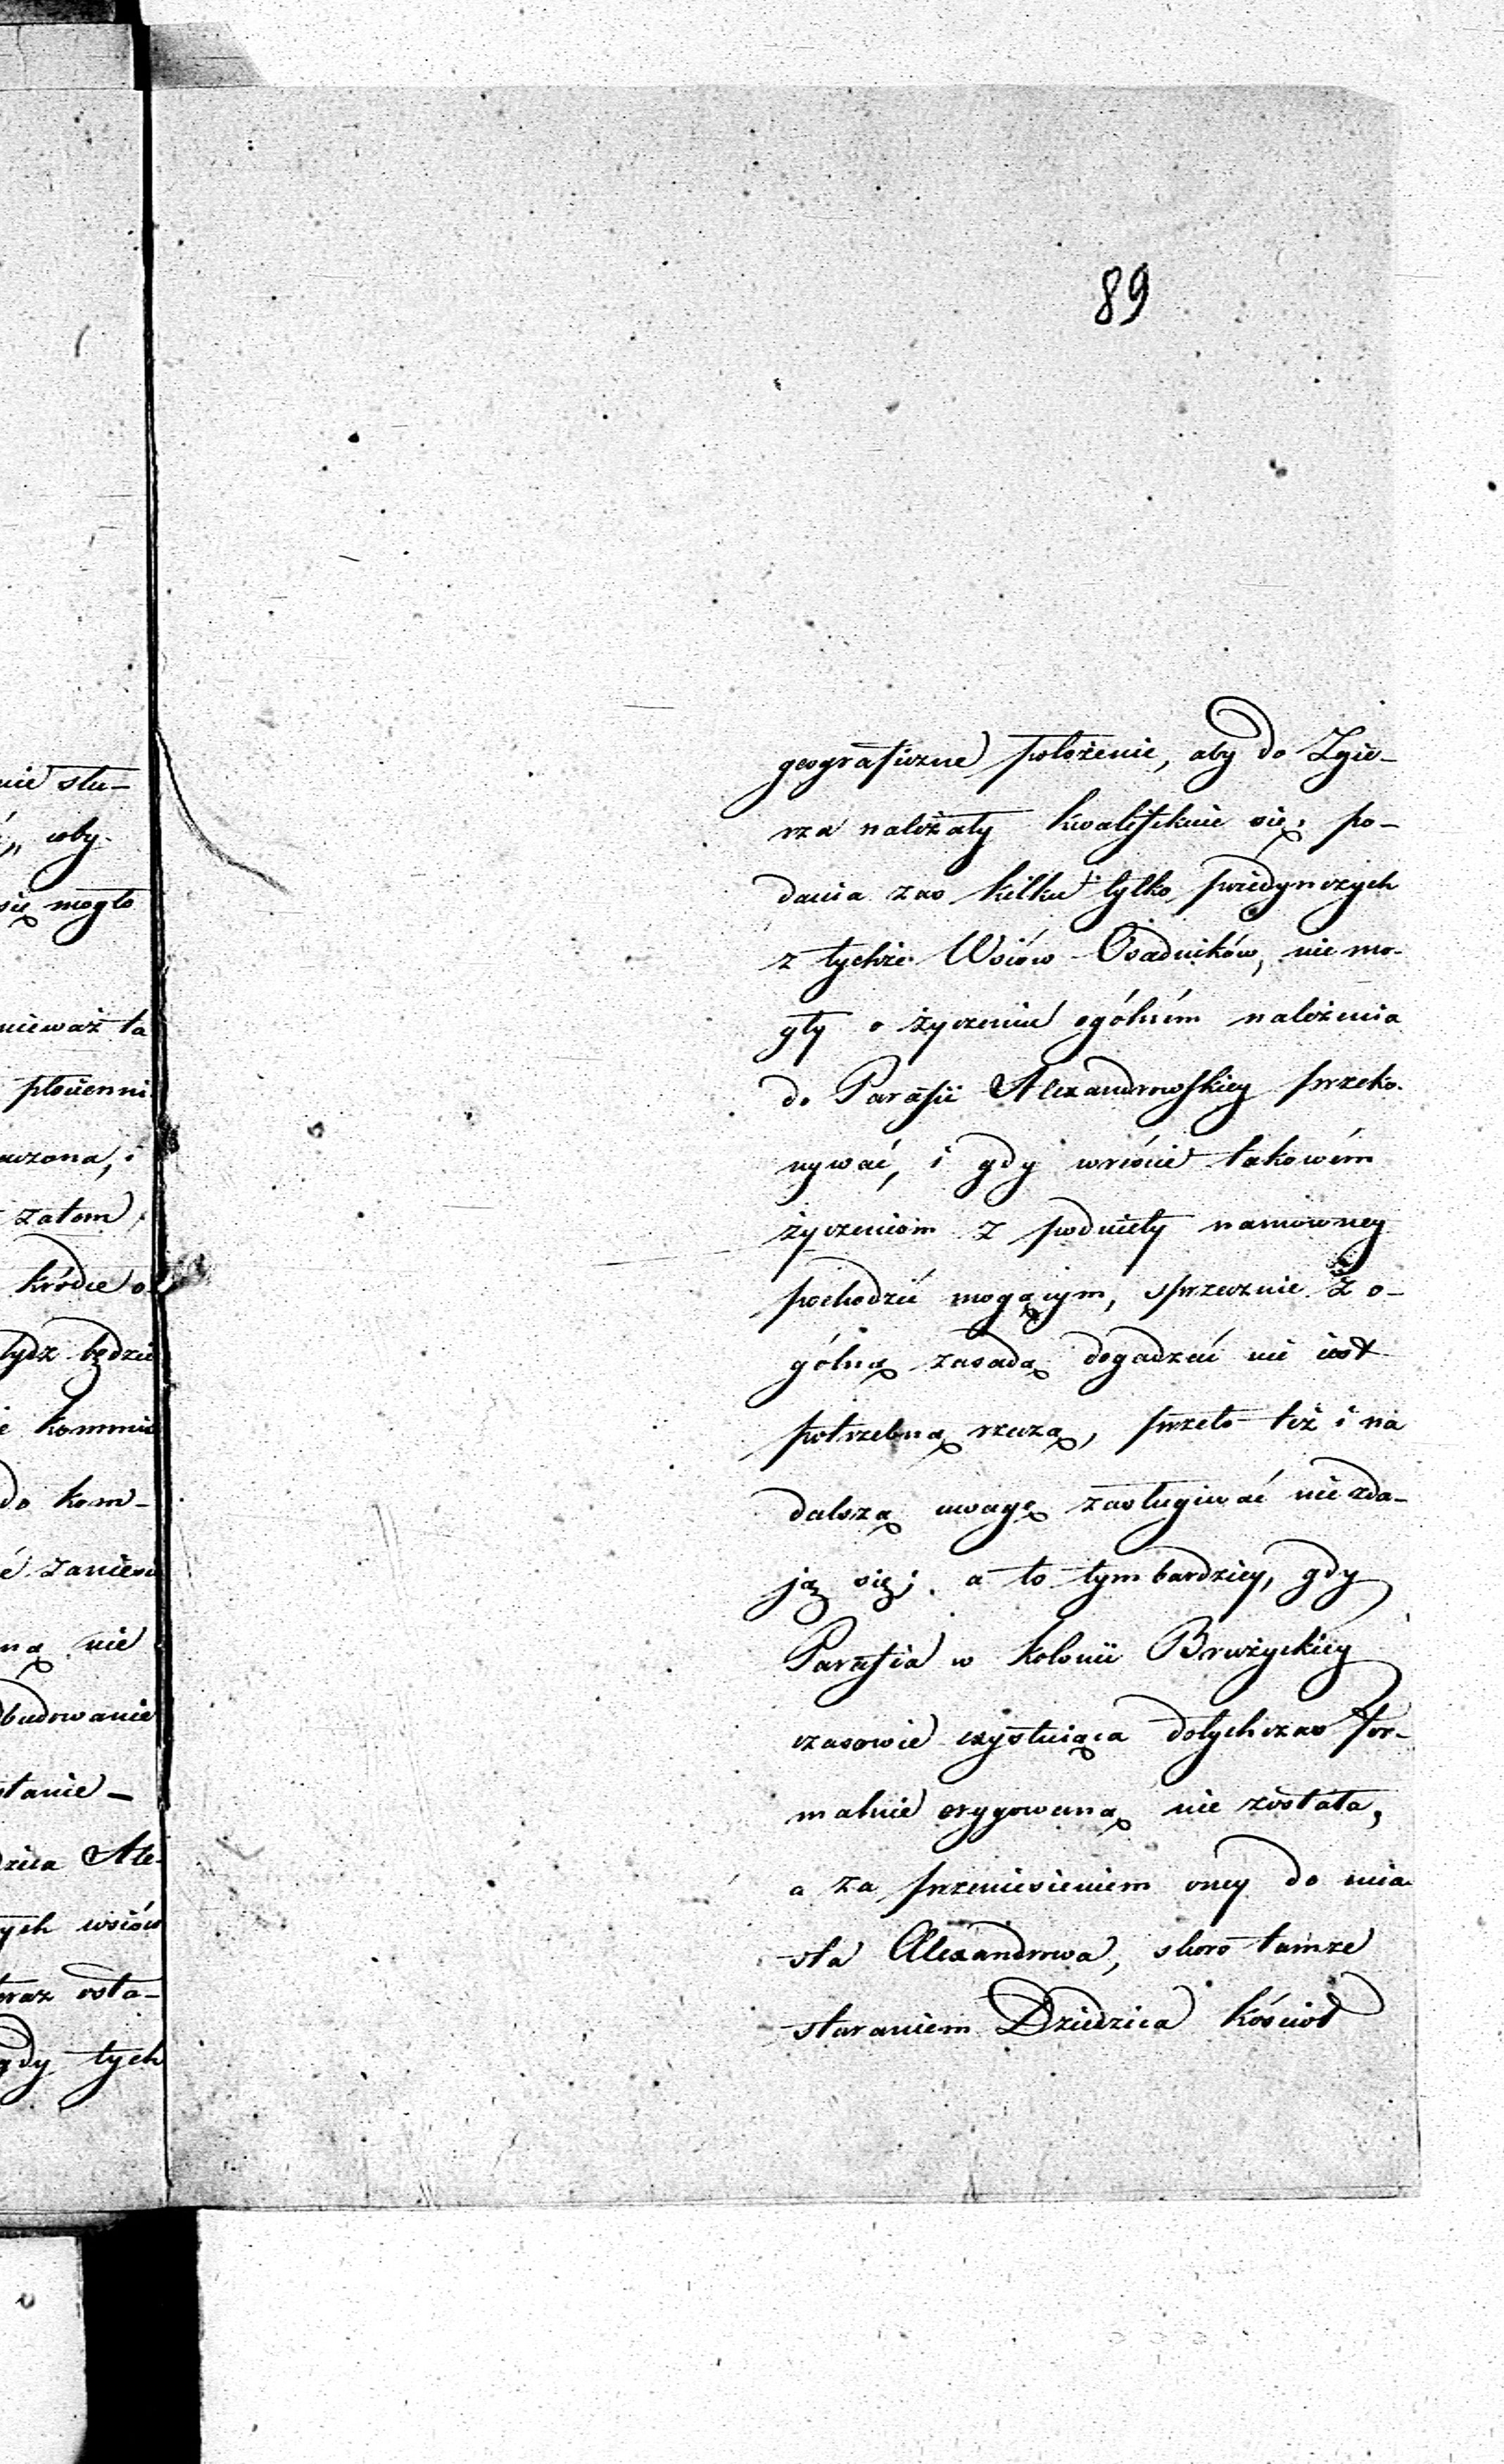 89
geograficzne położenie, aby do Zgie-
rza należały kwalifikuie się; po-
dania zas kilku tylko poiedynczych
z tychże Wsiów Osadników, nie mo-
gły o życzeniu ogólném należenia
do Parafii Alexandrowskiey przeko-
nywać, i gdy wreście takowém
życzeniom z podniety namowney
pochodzić mogącym, sprzecznie z o-
gólną zasadą dogadzać nie iest
potrzebną rzeczą, przeto też i na
dalszą uwagę zasługiwać nie zda-
ją się; a to tym bardziey, gdy
Parafia w Kolonii Brużyckiey
czasowie exystuiąca dotychczas for-
malnie erygowaną nie została,
a za przeniesieniem oney do mia-
sta Alexandrowa, skoro tamże
staraniem Dziedzica Kościoł
nie słu-
oby-
się mogło
nieważ ta
płocienni
zatem
tydz będzie
e kommis
do kom-
é zaniesi
ną nie
dbudowanie
stanie -
dzica Ale-
ych wsiów
teraz osta-
gdy tych